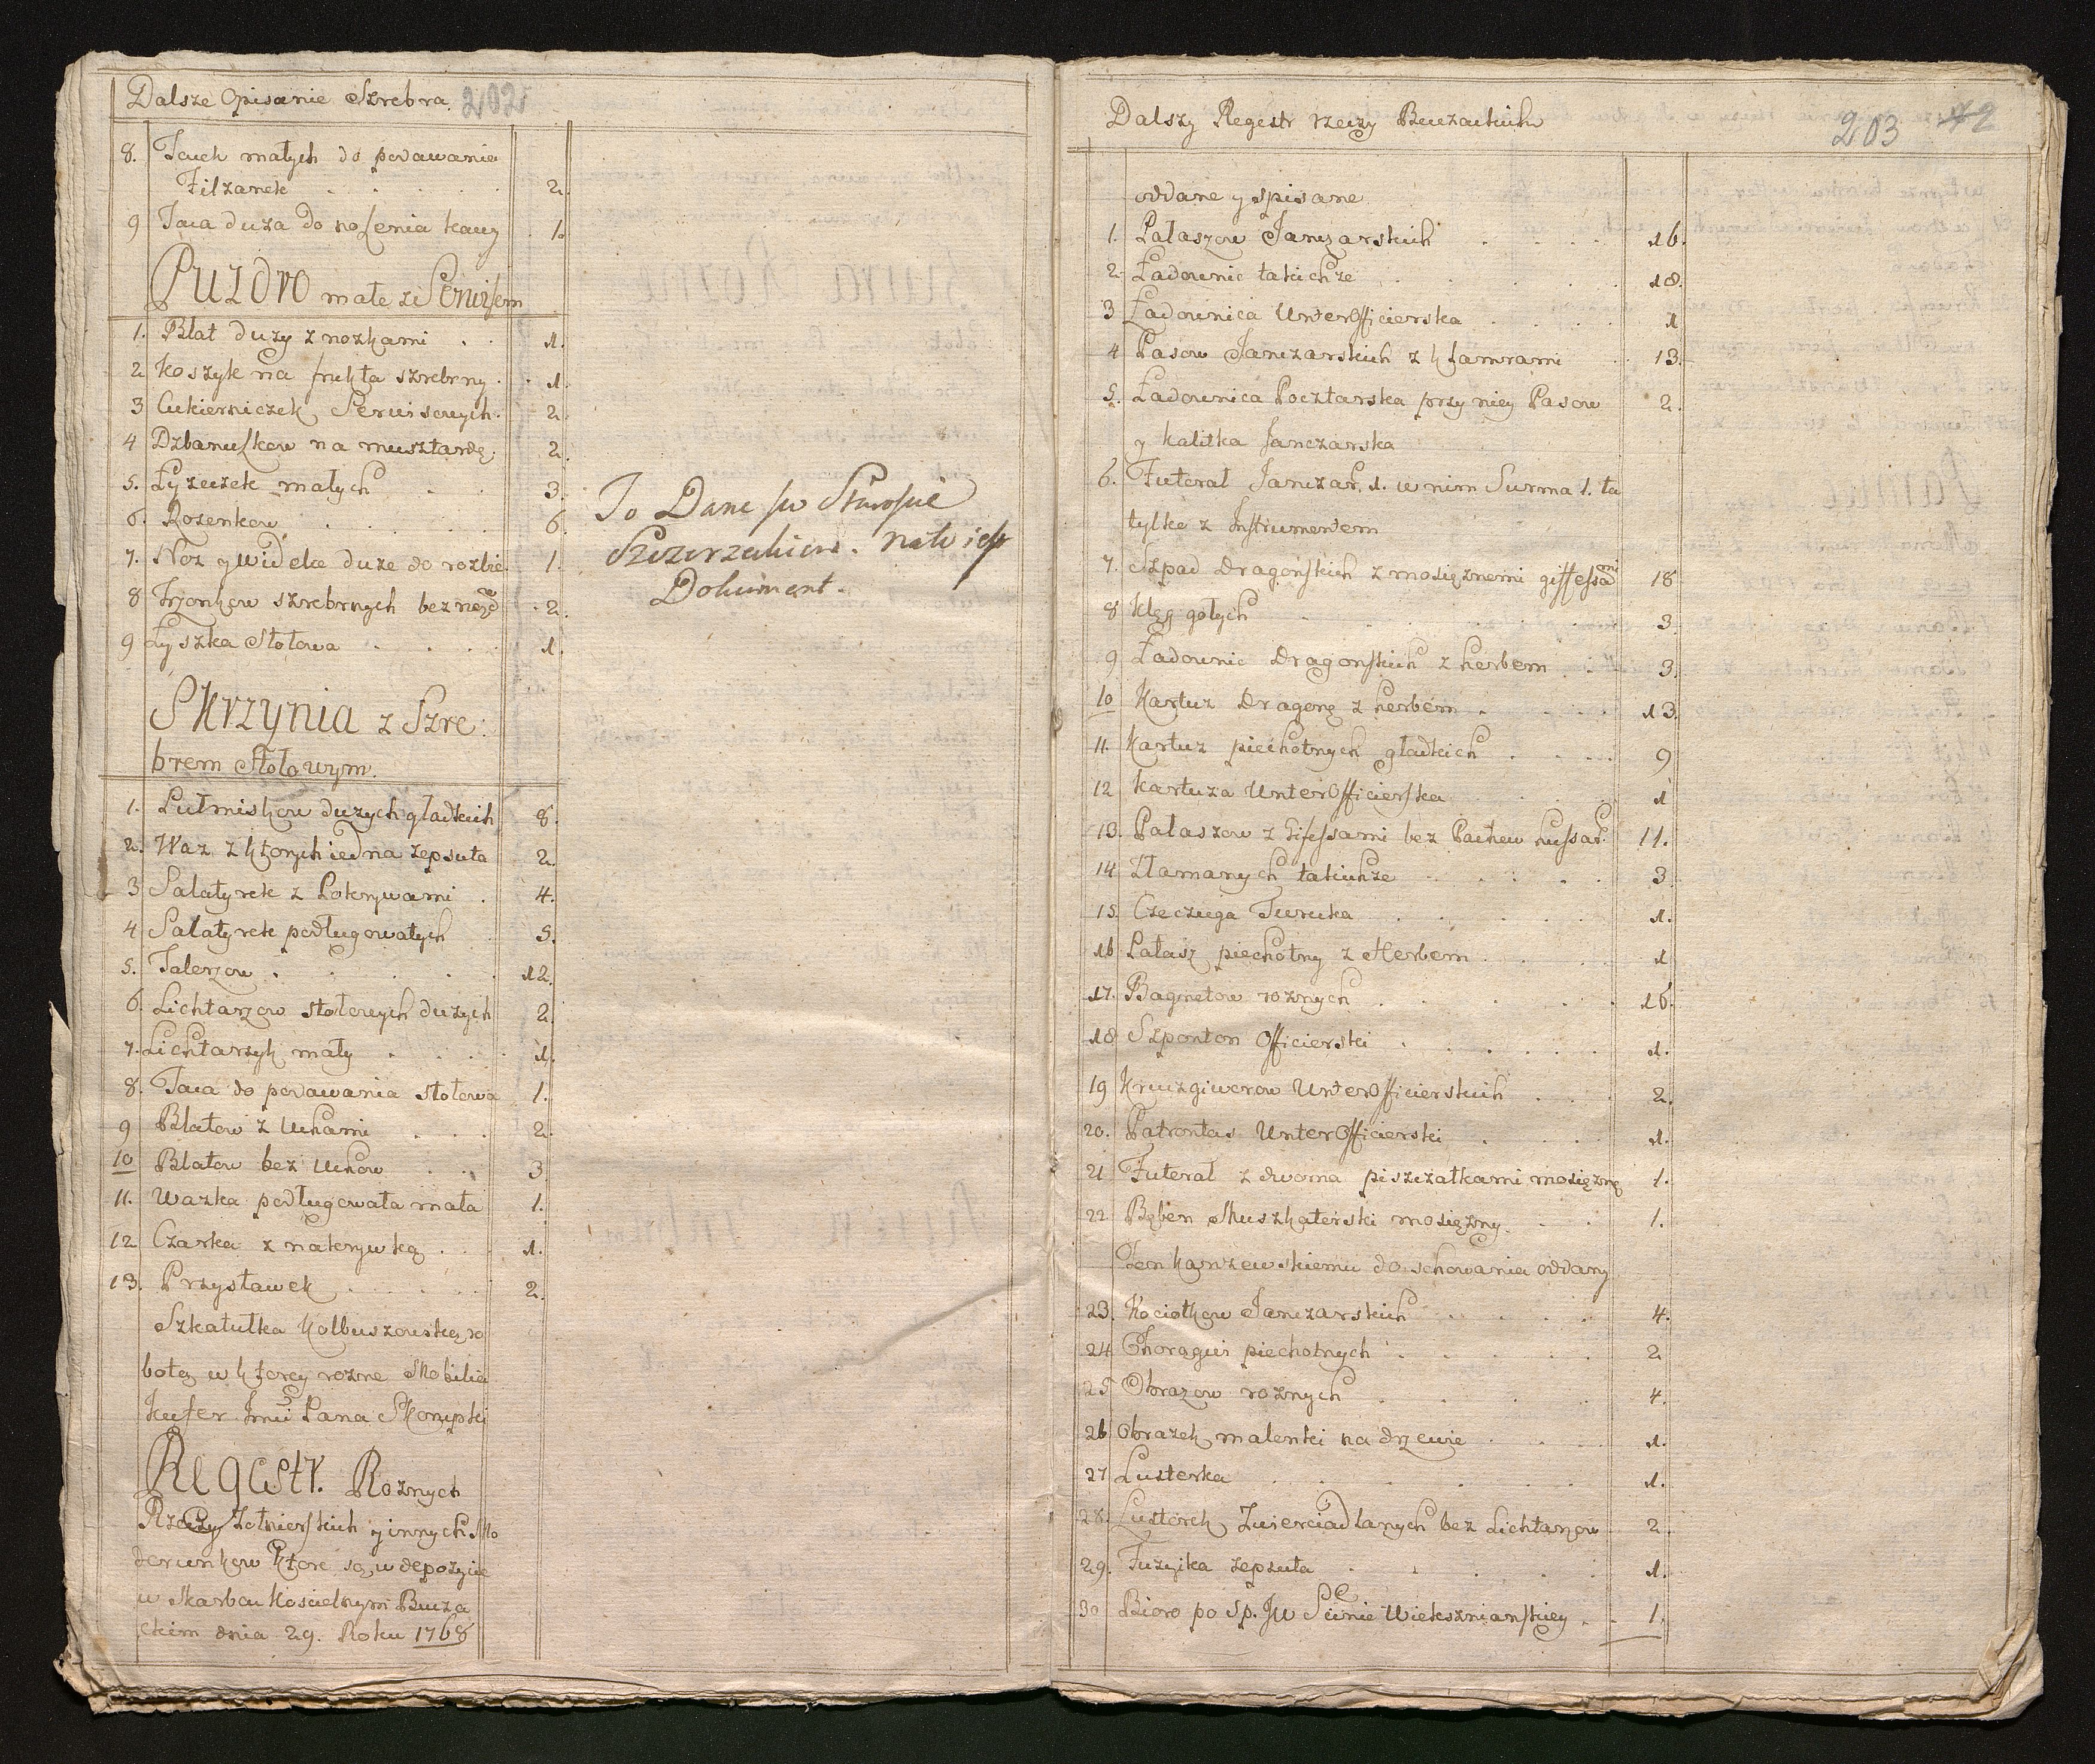 Dalsze Opisanie Szrebra. 202
8. Tacek małych do podawania
Filzanek . . . . 2.
9 Taca duża do noszenia kawy . 1.
Puzdro małe ze Serwisem
1. Blat duży z nozkami . . 1.
2 Koszyk na frukta szrebrny . . 1.
3 Cukierniczek Serwisowych . 2.
4 Dzbanuszkow na musztardę . 2.
5. Łyzeczek małych . . 3.
6. Rozenkow . . . . 6.
7. Noz y widelce duze do rozbie. 1.
8 Trzonkow szrebrnych bez nożo . 2.
9 Łyszka Stołowa . . . . 1.
Skrzynia z Szre:
brem Stołowym.
1. Pułmiskow dużych gładkich 8.
2. Waz z ktorych iedna zepsuta 2.
3 Sałatyrek z Pokrywami . 4.
4 Sałatyrek podługowatych 5.
5. Talerzow . . . . . 12.
6. Lichtarzow stołowych dużych 2.
7. Lichtarzyk mały . . . . 1.
8. Taca do podawania stołowa 1.
9 Blatow z Uchami . . . 2.
10 Blatow bez Uchow . . 3.
11. Wazka podługowata mała 1.
12 Czarka z nakrywką . . 1.
13. Przystawek . . . . . 2.
Szkatułka Kolbuszowską ro
botą w ktorey rozne Mobilia
Kufer Jmci Pana Skorupki
Regestr. Roznych
Rzeczy Zołnierskich y innych Mo
derunkow ktore są w depozycie
w Skarbcu Koscielnym Bucza
ckim dnia 29. Roku 1768
To Dane JW Staroscie
Szczurzeckiem. na to iest
Dokument.
Dalszy Regestr rzeczy Buczackich
203 42
oddane y spisane
1. Pałaszow Janczarskich . . . . 16.
2. Ładownic takichze . . . . . 18.
3 Ładownica UnterOfficierska . . . . 1
4 Pasow Janczarskich z kłamrami . . 13.
5. Ładownica Pocztarska przy niey Pasow 2.
y kalitka Janczarska
6. Futerał Janczar. 1. w nim Surma 1. ta
tylko z Instrumentem
7. Szpad Dragońskich z mosięznemi giffessami 18
8 Kląg gołych . . . . . 3.
9 Ładownic Dragońskich z herbem . . 3.
10 Kartuz Dragonę z herbem . . . . 13.
11. Kartuz piechotnych gładkich . . . . 9
12 Kartuza UnterOfficierska . . . . 1
13. Pałaszow z Gifessami bez Pochew hussar. 11.
14 Złamanych takichze . . . . . 3.
15. Czeczuga Turecka . . . . . 1.
16 Pałasz piechotny z Herbem . . . 1
17. Bagnetow roznych . . . . . 16.
18 Szponton Officierski . . . . . . 1.
19 Kruzgiwerow UnterOfficierskich . . . 2.
20. Patrontas UnterOfficierski . . . . 1.
21 Futerał z dwoma piszczałkami mosięzne 1.
22 Bęben Muszkaterski mosięzny . . . 1.
Ten Karszewskiemu do schowania oddany
23. Kociołkow Janczarskich . . . . . 4.
24 Chorągwi piechotnych . . . . . 2
25 Obrazow roznych . . . . . 4.
26 Obrazek malenki na drzewie . . . 1.
27 Lusterka . . . . . . 1.
28. Lusterek Zwierciadlanych bez Lichtarzow 2.
29. Fuzyika zepsuta . . . . . 1.
30 Bioro po Sp. JW Pcinie Wieleszniańskiey . . 1.